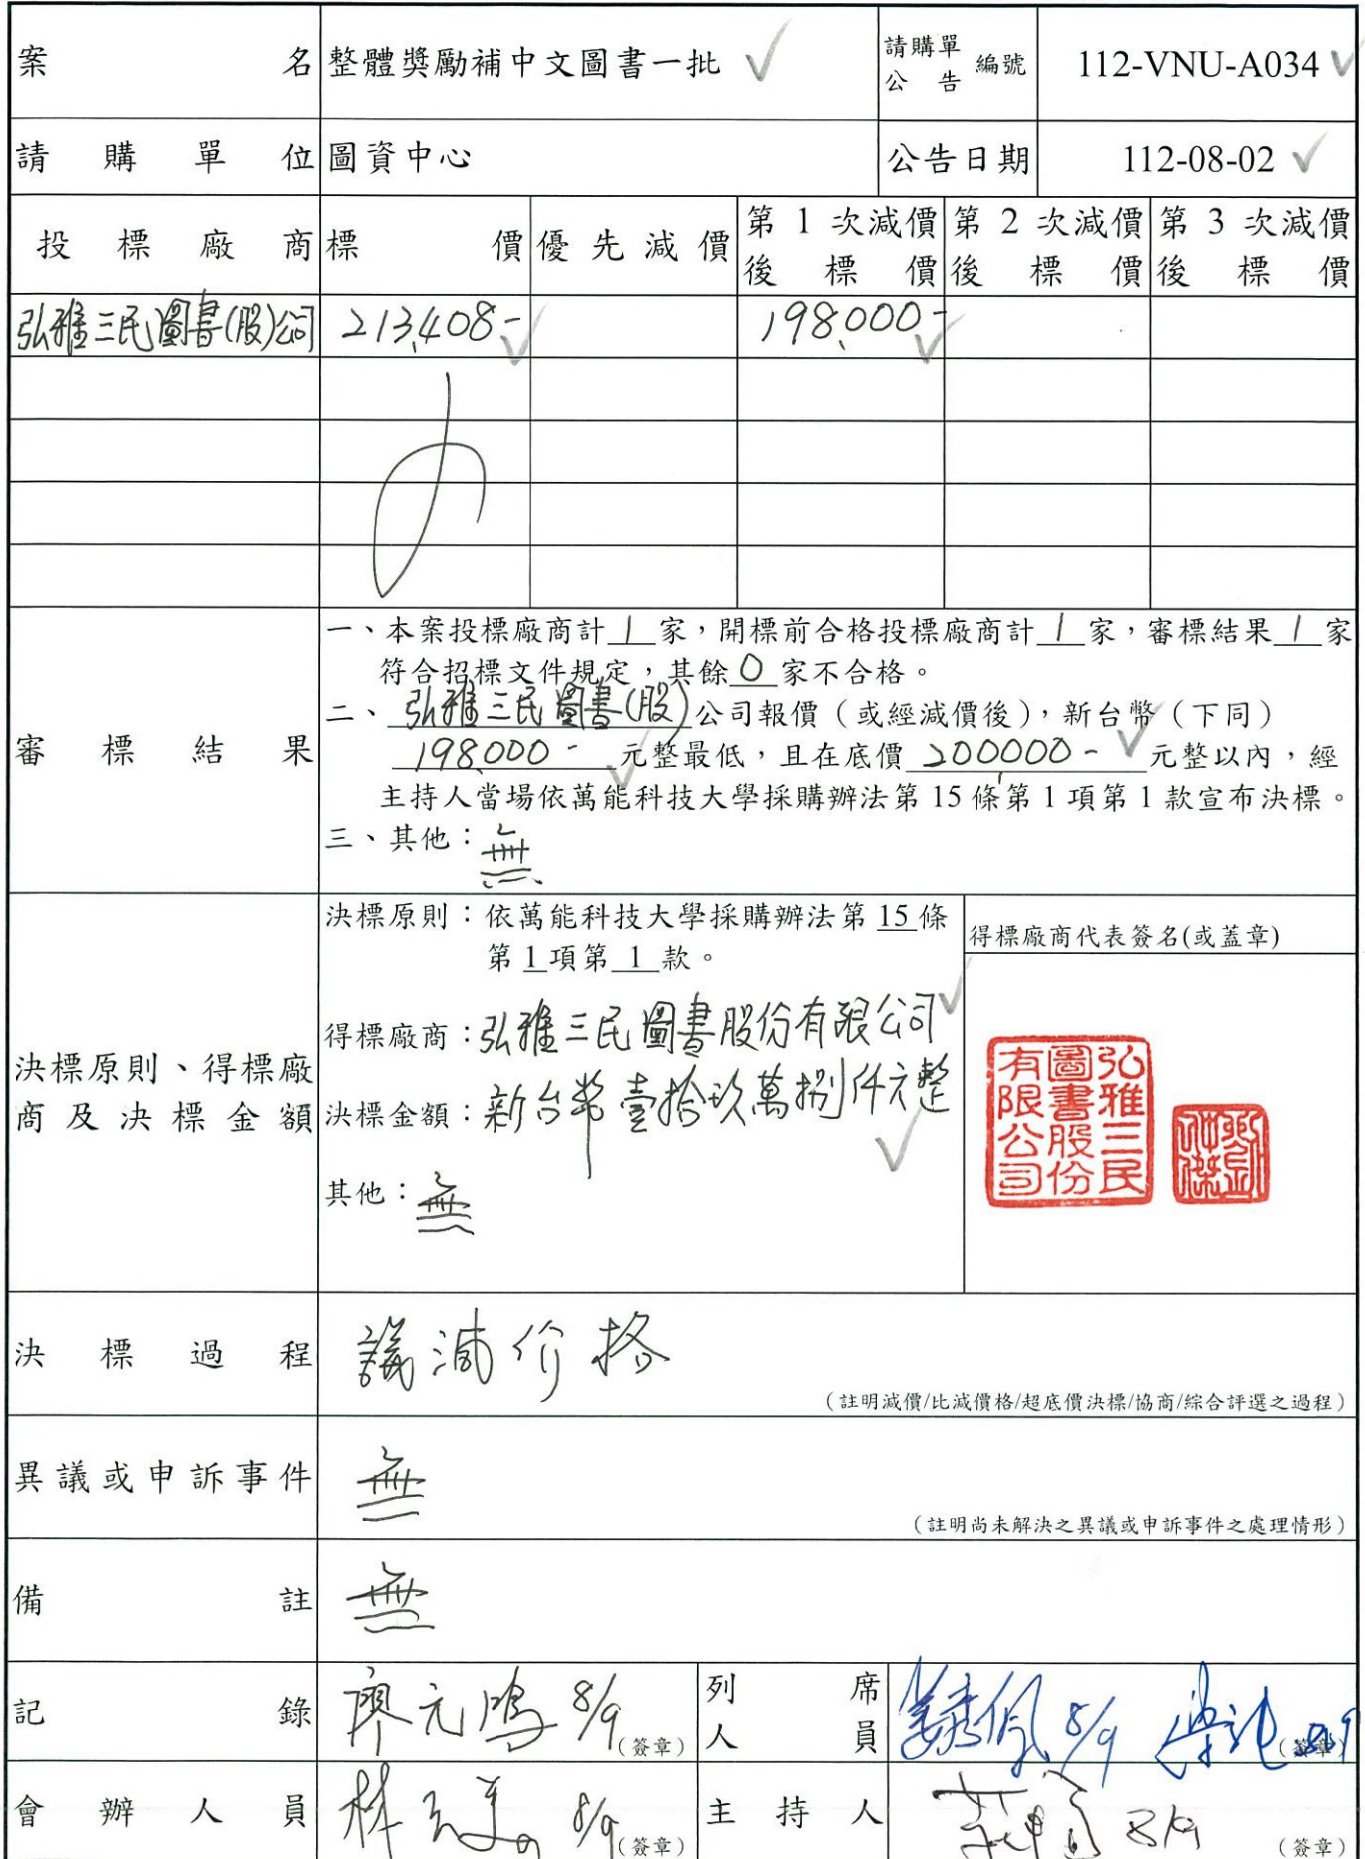 案名 整體獎勵補中文圖書一批 請購單公告編號 112-VNU-A034
請購單位 圖資中心 公告日期 112-08-02
投標廠商 標價 優先減價 第1次減價後標價 第2次減價後標價 第3次減價後標價
弘雅三民圖書(股)公司 213,408- 198,000-
審標結果
一、本案投標廠商計 1 家，開標前合格投標廠商計 1 家，審標結果 1 家
符合招標文件規定，其餘 0 家不合格。
二、弘雅三民圖書(股)公司報價（或經減價後），新台幣（下同）
198,000- 元整最低，且在底價 200,000- 元整以內，經
主持人當場依萬能科技大學採購辦法第15條第1項第1款宣布決標。
三、其他：無
決標原則、得標廠商及決標金額
決標原則：依萬能科技大學採購辦法第 15 條
第 1 項第 1 款。
得標廠商：弘雅三民圖書股份有限公司
決標金額：新台幣壹拾玖萬捌仟元整
其他：無
得標廠商代表簽名(或蓋章)
弘雅三民圖書股份有限公司
決標過程 議減价格
（註明減價/比減價格/超底價決標/協商/綜合評選之過程）
異議或申訴事件 無
（註明尚未解決之異議或申訴事件之處理情形）
備註 無
記錄 廖元鴻 8/9 (簽章) 列席人員 8/9 (簽章)
會辦人員 林 8/9 (簽章) 主持人 8/9 (簽章)